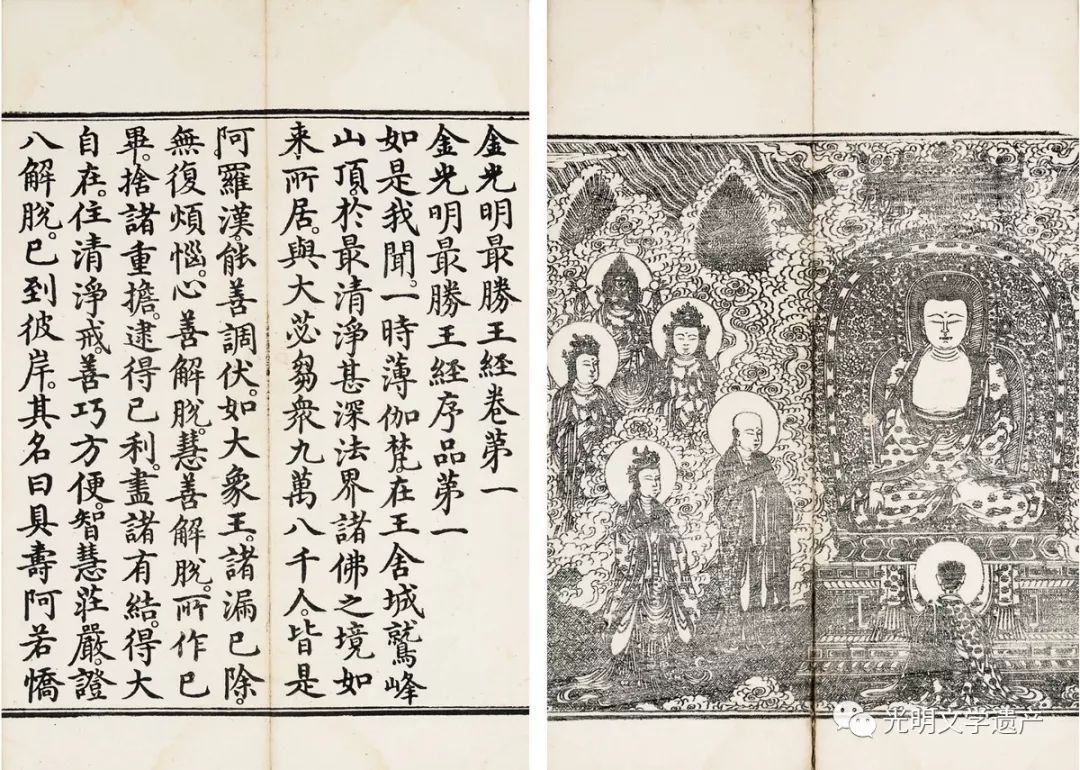 金光明最勝王經卷第一
金光明最勝王經序品第一
如是我聞。一時薄伽梵。在王舍城鷲峰
山頂。於最清淨甚深法界諸佛之境如
來所居。與大苾芻衆九萬八千人。皆是
阿羅漢能善調伏。如大象王。諸漏已除。
無復煩惱。心善解脫。慧善解脫。所作已
畢。捨諸重擔。逮得己利。盡諸有結。得大
自在。住清淨戒。善巧方便。智慧莊嚴。證
八解脫。已到彼岸。其名曰具壽阿若憍
光明文学遗产